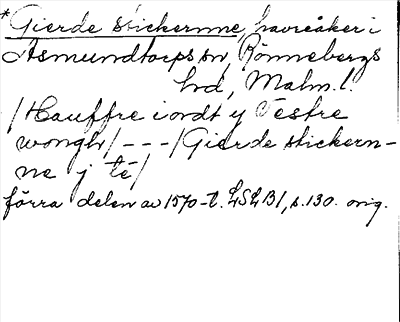 *Gierde stickernne, havreåker i
Asmundtorps sn, Rönnebergs
hrd, Malm. l.
/Hauffre iordt y Vestre
wongh/ - - - /Gierde stickern-
ne j té/
förra delen av 1570-t. LSLB1, s. 130. orig.